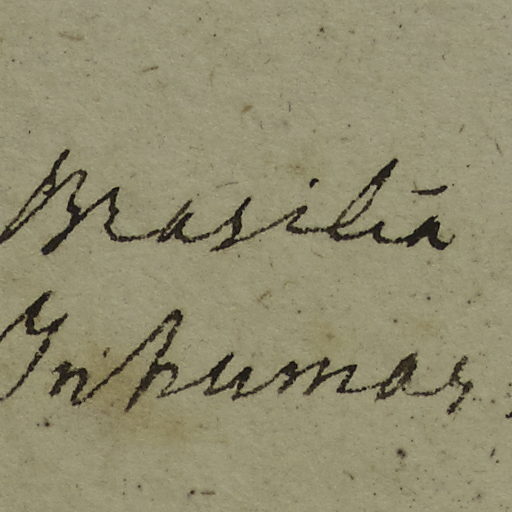 Brasilia
Inhumas,